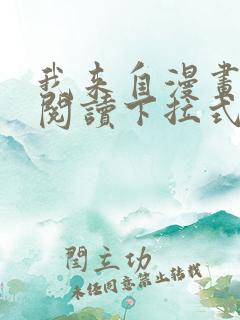 我来自漫畫
閱讀下拉式
閆立功
未经同意禁止转载